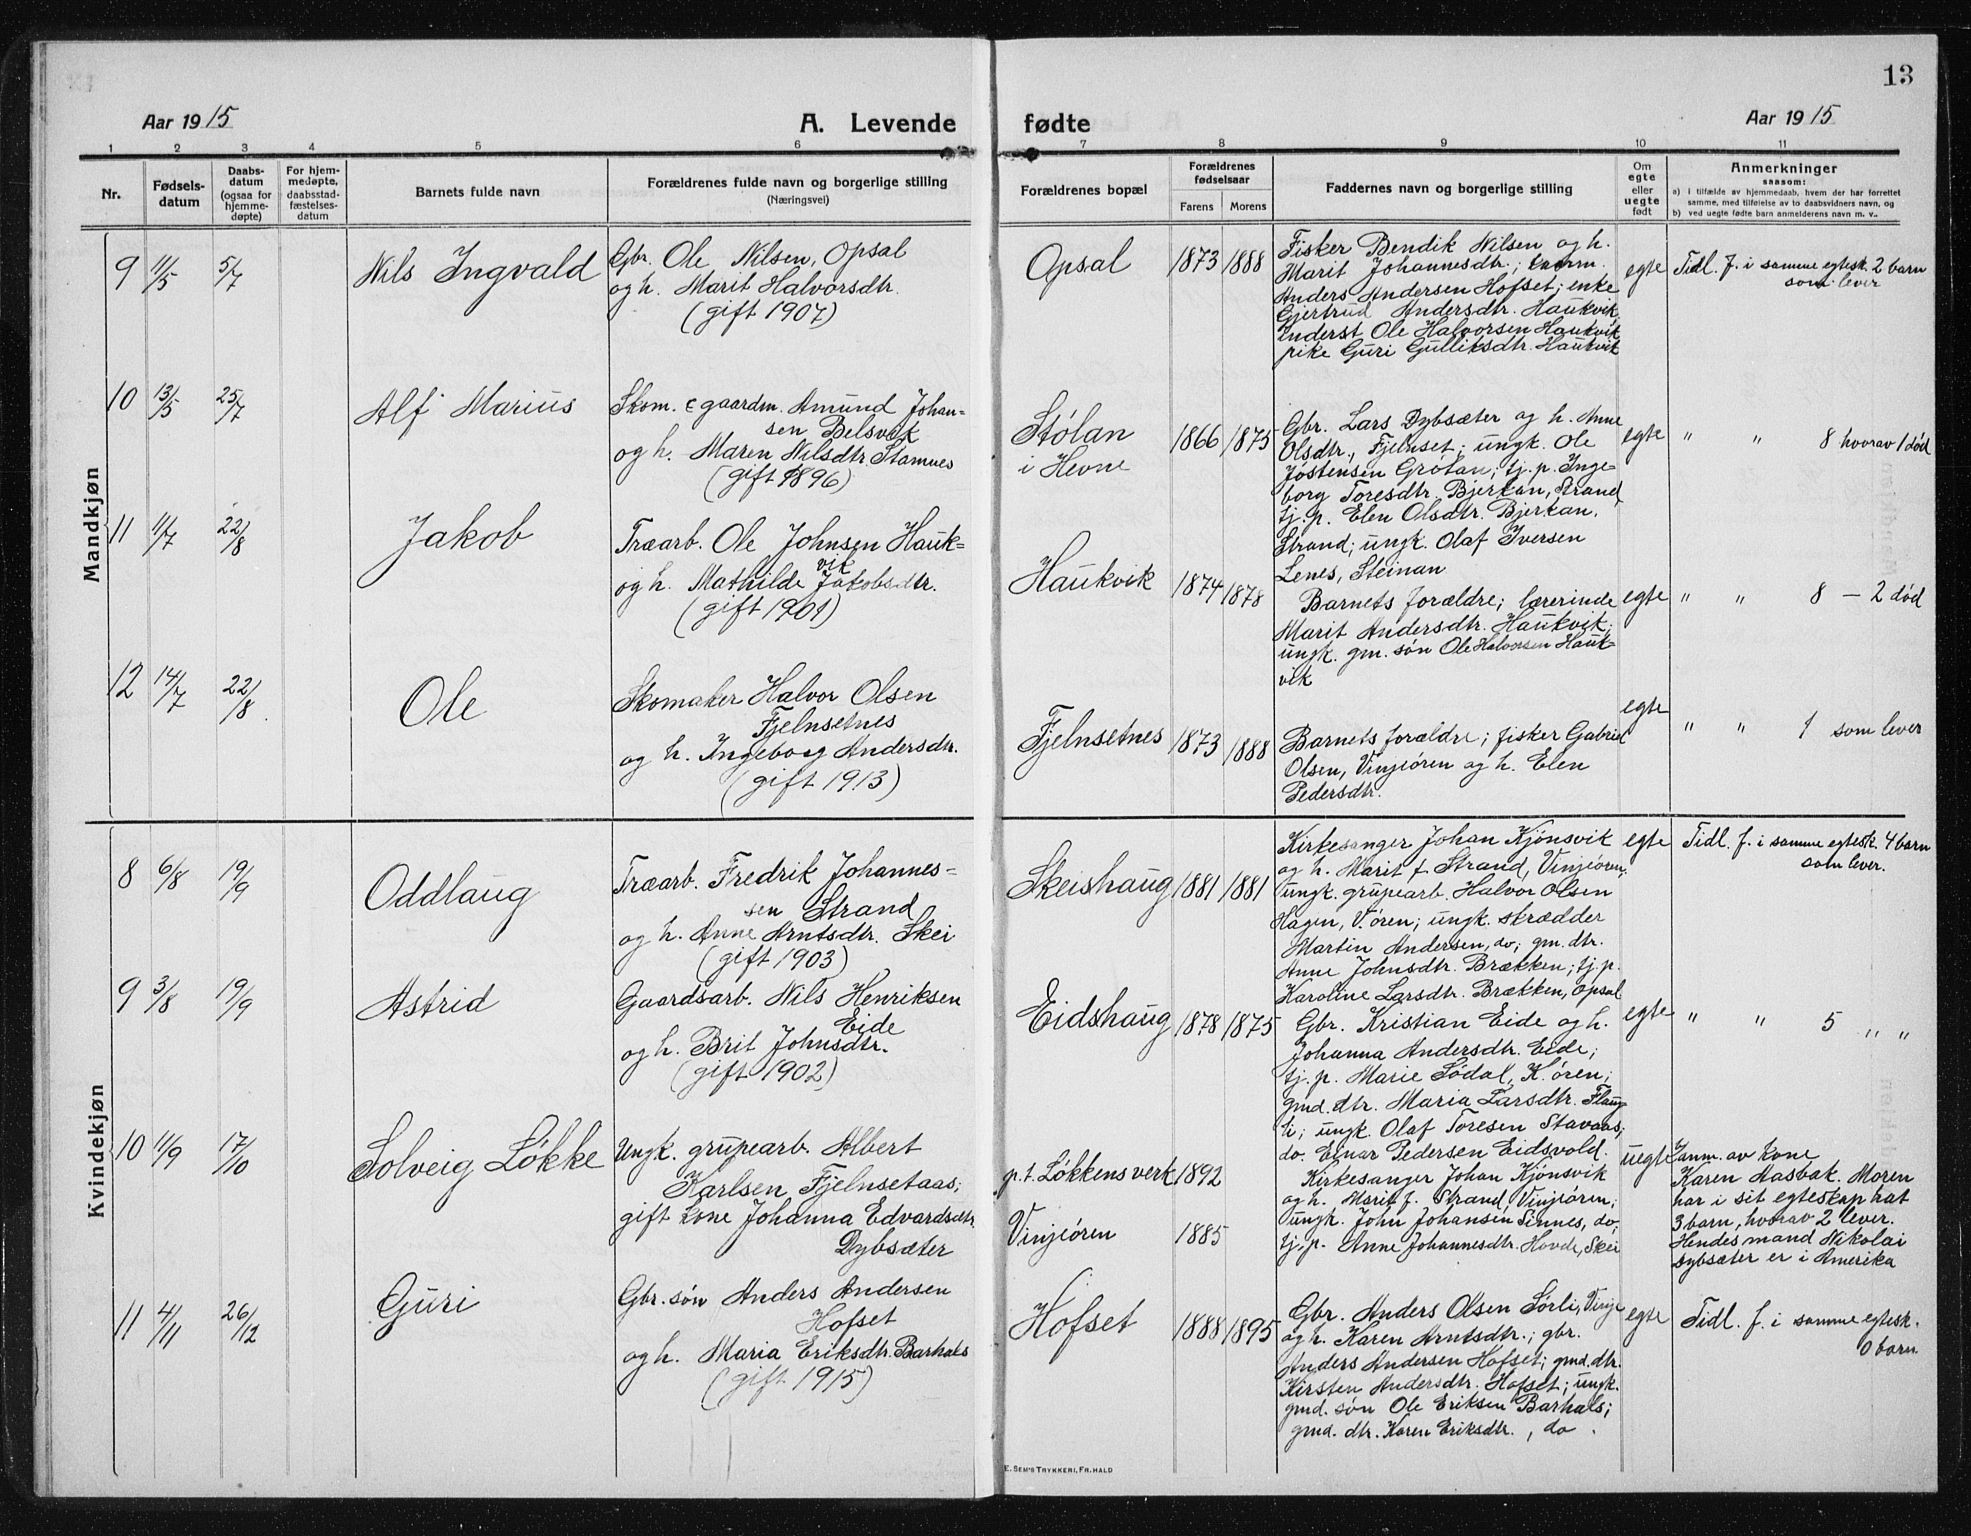 13
Aar 1915
A. Levende
fødte
Aar 1915
1 2 3 4 5 6 7 8 9 10 11
Nr.
Fødsels-
datum
Daabs-
datum
(ogsaa for
hjemme-
døpte)
For hjem-
medøpte,
daabsstad-
fæstelses-
datum
Barnets fulde navn
Forældrenes fulde navn og borgerlige stilling
(Næringsvei)
Forældrenes bopæl
Forældrenes
fødselsaar
Farens Morens
Faddernes navn og borgerlige stilling
Om
egte
eller
uegte
født
Anmerkninger
saasom:
a) i tilfælde av hjemmedaab, hvem der har forrettet
samme, med tilføielse av to daabsvidners navn, og
b) ved uegte fødte barn anmelderens navn m. v..
Mandkjøn
9 11/5 5/7 Nils Ingvald
Gbr. Ole Nilsen, Opsal
og h. Marit Halvorsdtr.
(gift 1907)
Opsal 1873 1888
Fisker Bendik Nilsen og h.
Marit Johannesdtr.;
Anders Andersen Hofset; enke
Gjertrud Andersdtr. Haukvik,
inderst Ole Halvorsen Haukvik
pike Guri Gulliksdtr. Haukvik
egte
Tidl. f. i samme egtesk. 2 barn
som lever
10 13/5 25/7 Alf Marius
Skom. & gaardm. Amund Johan-
sen Belsvik
og h. Maren Nilsdtr. Stamnes
(gift 1896)
Stólan
i Hevne
1866 1875
Gbr. Lars Dybsæter og h. Anne
Olsdtr., Fjelnset; ungk. Ole
Jostensen Grótan; tj. p. Inge-
borg Toresdtr. Bjerkan, Strand,
tj. p. Elen Olsdtr. Bjerkan,
Strand; ungk. Olaf Iversen
Lenes, Steinan
egte
" " 8 hvorav 1 død
11 11/7 22/8 Jakob
Træarb. Ole Johnsen Hauk-
vik
og h. Mathilde Jakobsdtr.
(gift 1901)
Haukvik 1874 1878
Barnets forældre; lærerinde
Marit Andersdtr. Haukvik;
ungk. gm. søn Ole Halvorsen Hauk-
vik
egte
" " 8 — 2 død
12 14/7 22/8 Ole
Skomaker Halvor Olsen
Fjelnsetnes
og h. Ingeborg Andersdtr.
(gift 1913)
Fjelnsetnes 1873 1888
Barnets forældre; fisker Gabriel
Olsen, Vinjeóren og h. Elen
Pedersdtr.
egte
" " 1 som lever
Kvindekjøn
8 6/8 19/9 Oddlaug
Træarb. Fredrik Johannes-
sen Strand
og h. Anne Arntsdtr. Skei
(gift 1903)
Skeishaug 1881 1881
Kirkesanger Johan Kjónsvik
og h. Marit f. Strand, Vinjeóren,
ungk. grupearb. Halvor Olsen
Hagen, V.óren; ungk. skrædder
Martin Andersen, do; gm. dtr.
Anne Johnsdtr. Brækken; tj. p.
Karoline Larsdtr. Brækken, Opsal
egte
Tidl. f. i samme egtesk. 4 barn
som lever.
9 3/8 19/9 Astrid
Gaardsarb. Nils Henriksen
Eide
og h. Brit Johnsdtr.
(gift 1902)
Eidshaug 1878 1875
Gbr. Kristian Eide og h.
Johanna Andersdtr. Eide;
tj. p. Marie Sódal, K. óren;
gmd. dtr. Maria Larsdtr. Flaug-
li; ungk. Olaf Toresen Stavaas;
do. Einar Pedersen Eidsvold.
egte
" " 5 " "
10 11/9 17/10 Solveig Lókke
Ungk. grupearb. Albert
Karlsen Fjelnsetaas;
gift kone Johanna Edvardsdtr.
Dybsæter
p. t. Lókkens verk 1892
Vinjeóren 1885
Kirkesanger Johan Kjónsvik
og h. Marit f. Strand, Vinjeóren;
ungk. John Johansen Sinnes, do;
tj. p. Anne Johannesdtr. Hovde, Skei
uegte
anm. av kone
Karen Aasbak. Moren
har i sit egteskap hat
3 barn, hvorav 2 lever.
Hendes mand Nikolai
Dybsæter er i Amerika
11 4/11 26/12 Guri
Gbr. søn Anders Andersen
Hofset
og h. Maria Eriksdtr. Barhals
(gift 1915)
Hofset 1888 1895
Gbr. Anders Olsen Sórli, Vinje
og h. Karen Arntsdtr.; gbr.
Anders Andersen Hofset; gmd. dtr.
Kirsten Andersdtr. Hofset; ungk.
gmd. søn Ole Eriksen Barhals;
gmd. dtr. Karen Eriksdtr., do.
egte
Tidl. f. i samme egtesk.
0 barn
E. Sem's Trykkeri, Fr.hald